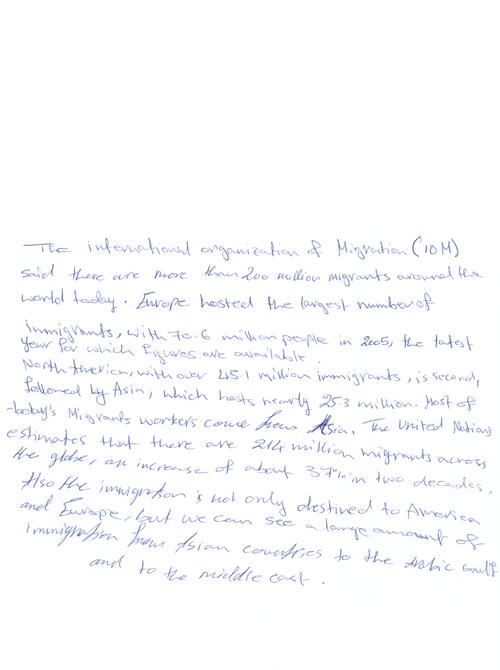 The international organization of Migration (IOM)
said there are more than 200 million migrants around the
world today. Europe hosted the largest number of
immigrants, with 70.6 million people in 2005, the latest
year for which figures are available.
North America, with over 45.1 million immigrants, is second,
followed by Asia, which hosts nearly 25.3 million. Most of
today's Migrants workers come from Asia. The United Nations
estimates that there are 214 million migrants across
the globe, an increase of about 37% in two decades.
Also the immigration is not only destined to America
and Europe, but we can see a large amount of
immigration from Asian countries to the Arabic gulf
and to the middle east.